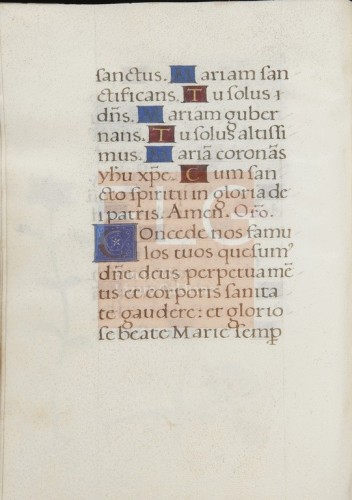 sanctus. Mariam san
ctificans. Tu solus
dn̄s. Mariam guber
nans. Tu solus altissi
mus. Mariā coronās
yhu xp̄e. Cum san
cto spiritu in gloria de
i patris. Amen. Oro᷒.
Concede nos famu
los tuos quesum᷒
dn̄e deus perpetua mē
tis et corporis sanita
te gaudere: et glorio
se beate Marie semꝑ